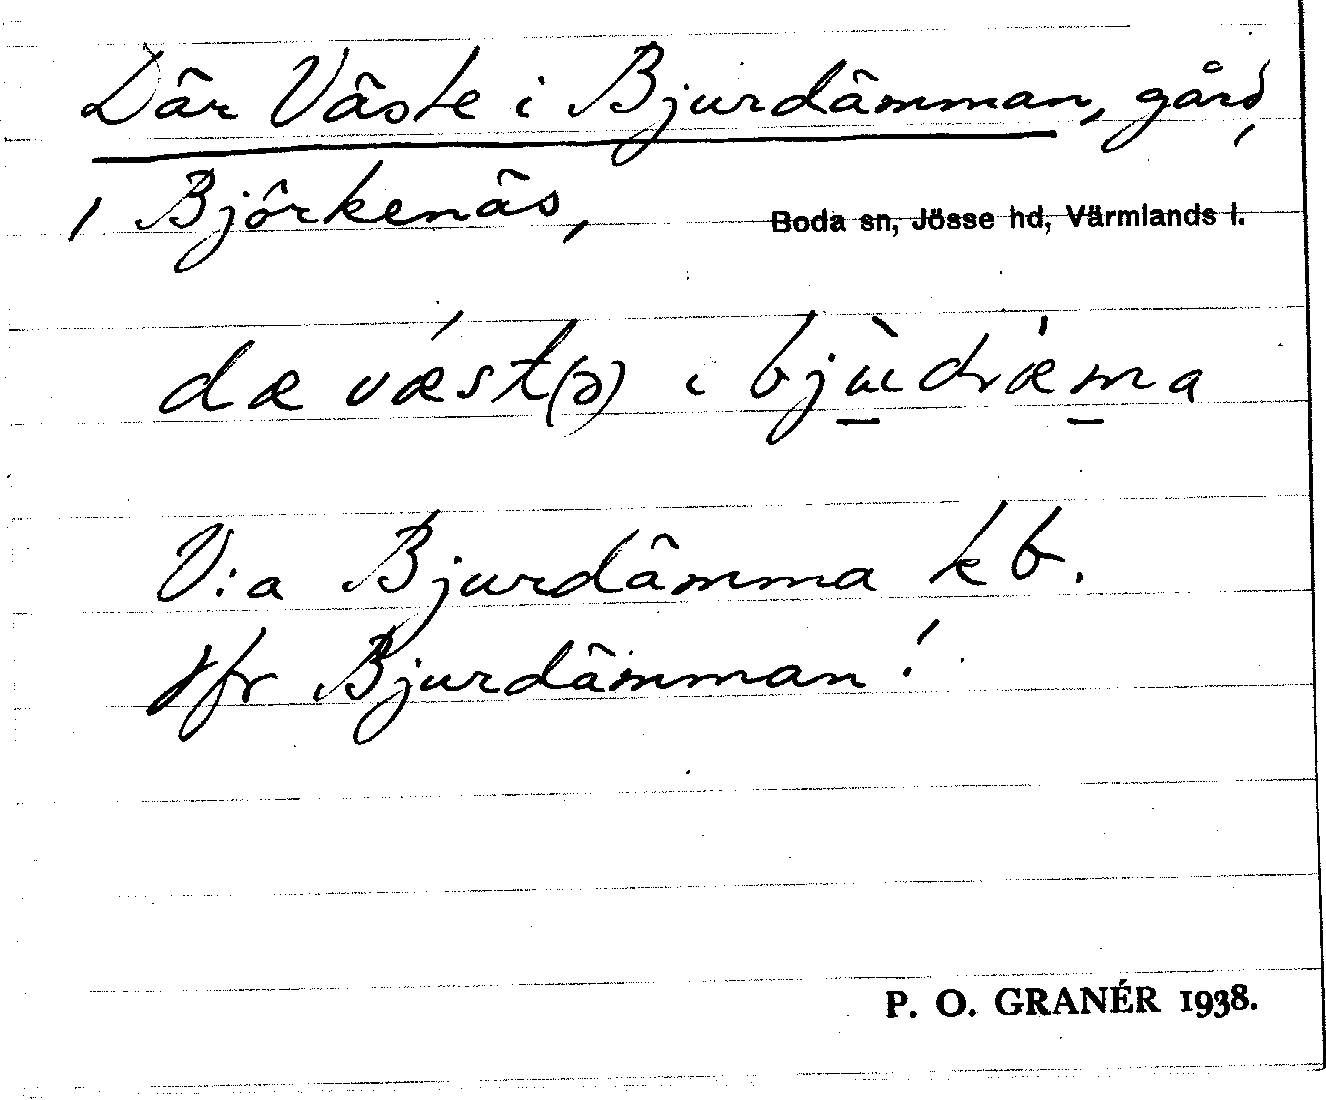 Där Väste i Bjurdämman, gård,
1 Björkenäs, Boda sn, Jösse hd, Värmlands l.
dæ væst(ə) i bjùdræ̀ma
V:a Bjurdämma kb.
Jfr Bjurdämman!
P. O. GRANÉR 1938.